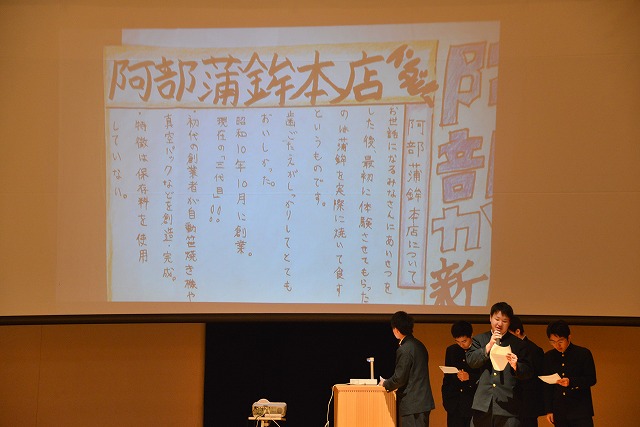 阿部蒲鉾本店
阿部蒲鉾本店について
お世話になるみなさんにあいさつを
した後、最初に体験させてもらった
のは蒲鉾を実際に焼いて食す
というものです。
歯ごたえがしっかりしてとても
おいしかった。
昭和10年10月に創業。
現在の「三代目」!!
・初代の創業者が自動笹焼き機や
真空パックなどを創造・完成。
・特徴は保存料を使用
していない。
新